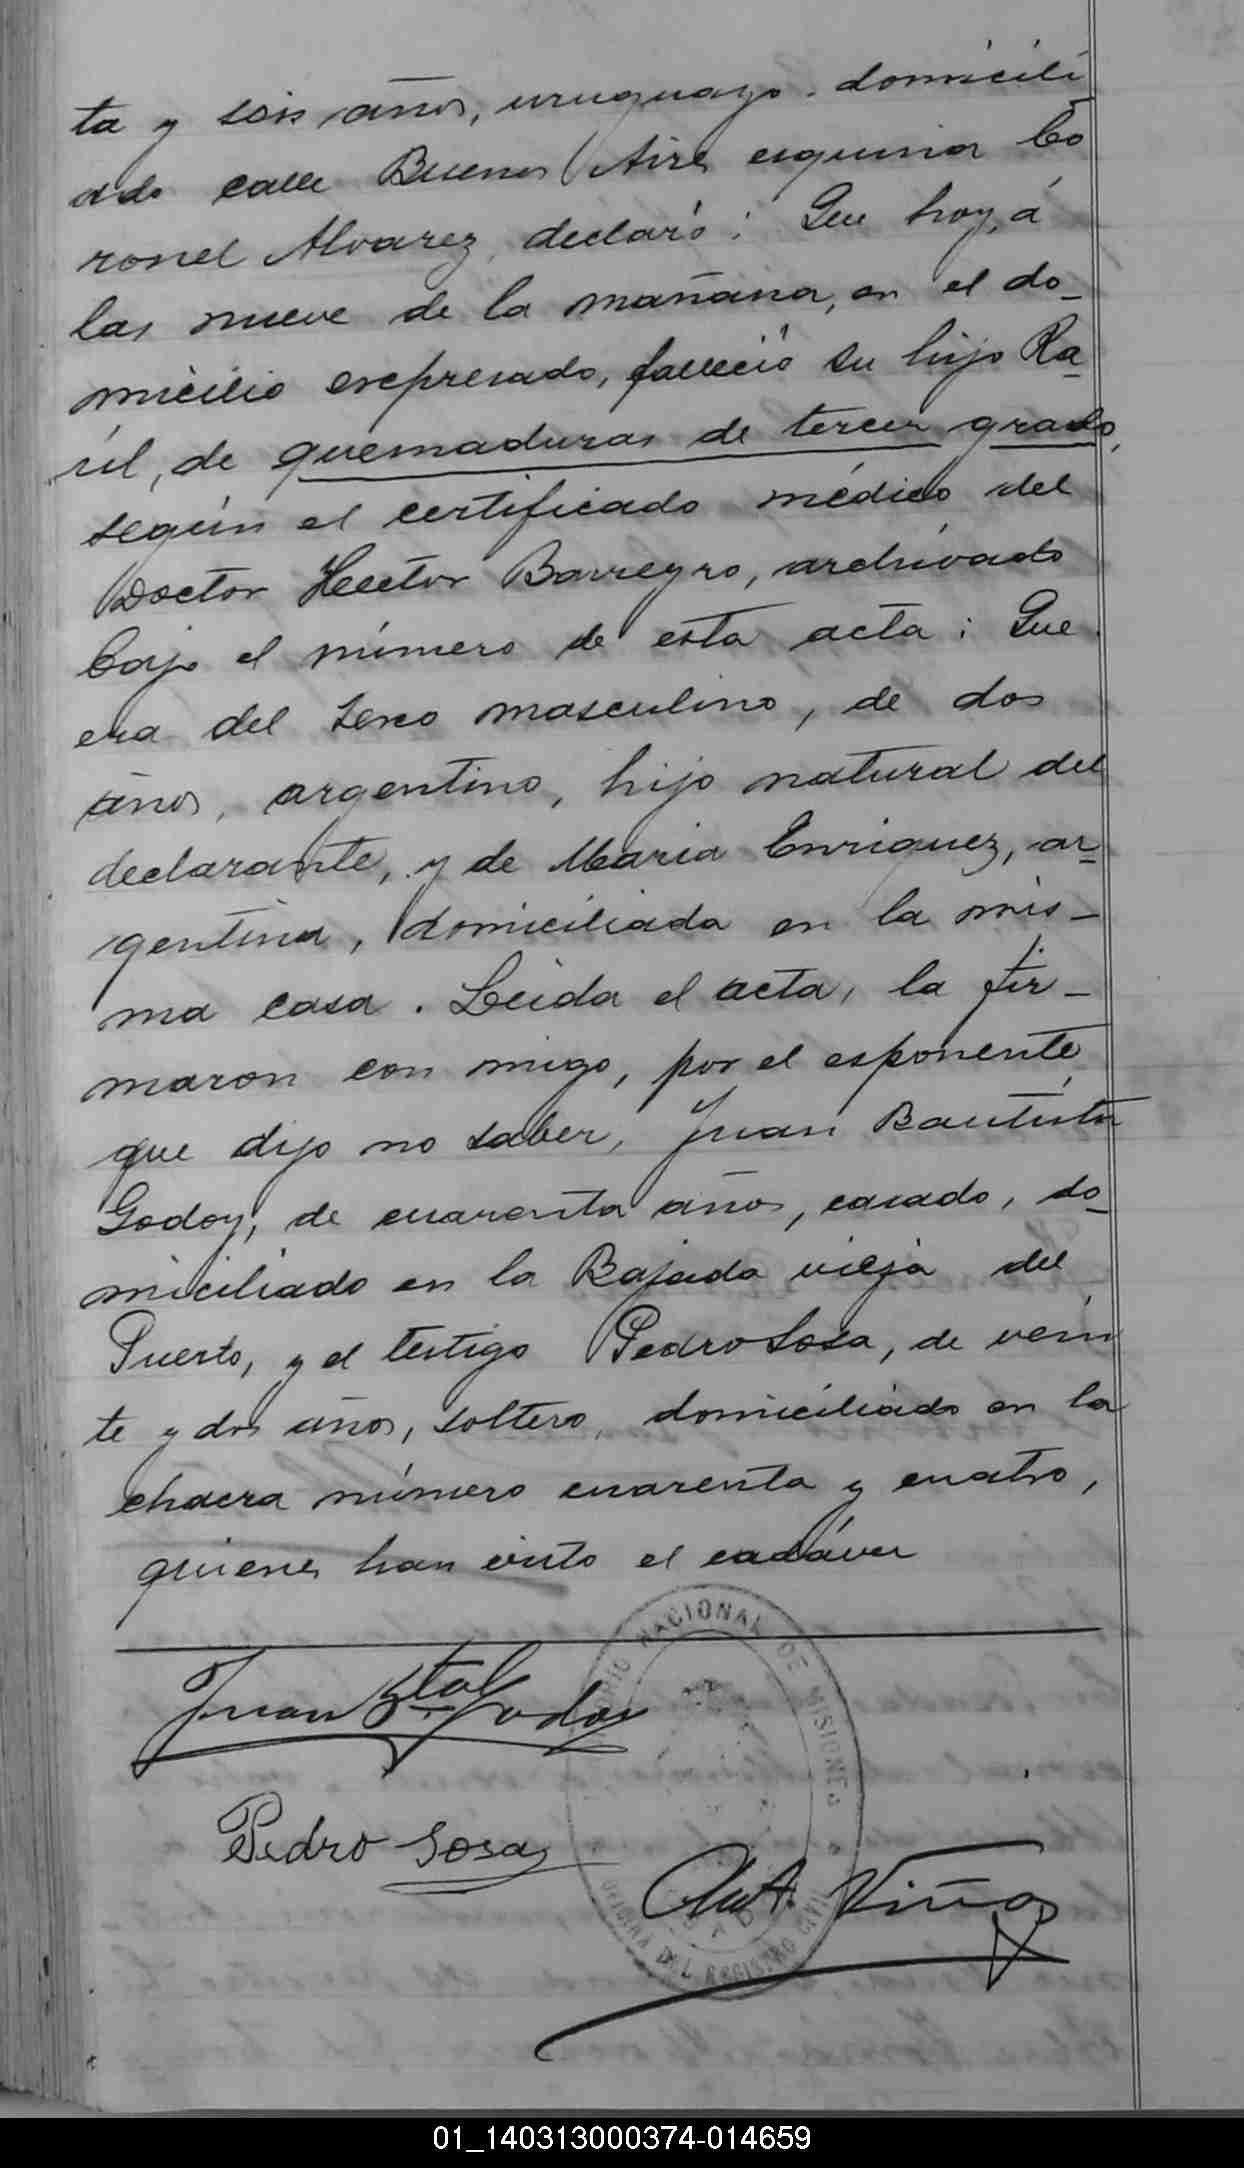 ta y seis años, uruguayo, domicili
ado calle Buenos Aires esquina Co
ronel Alvarez, declaró: Que hoy, á
las nueve de la mañana, en el do-
micilio expresado, falleció su hijo Ra-
úl, de quemaduras de tercer grado,
según el certificado médico del
Doctor Hector Barreyro, archivado
bajo el número de esta acta: Que
era del sexo masculino, de dos
años, argentino, hijo natural del
declarante, y de Maria Enriquez, ar-
gentina, domiciliada en la mis-
ma casa. Leida el acta, la fir-
maron con migo, por el esponente
que dijo no saber, Juan Bautista
Godoy, de cuarenta años, casado, do-
miciliado en la Bajada vieja del
Puerto, y el testigo Pedro Sosa, de vein
te y dos años, soltero, domiciliado en la
chacra número cuarenta y cuatro,
quienes han visto el cadáver
Juan Bta Godoy
Pedro Sosa
Ant. Viñas
NACIONAL DE MISIONES
OFICINA DEL REGISTRO CIVIL
01_140313000374-014659